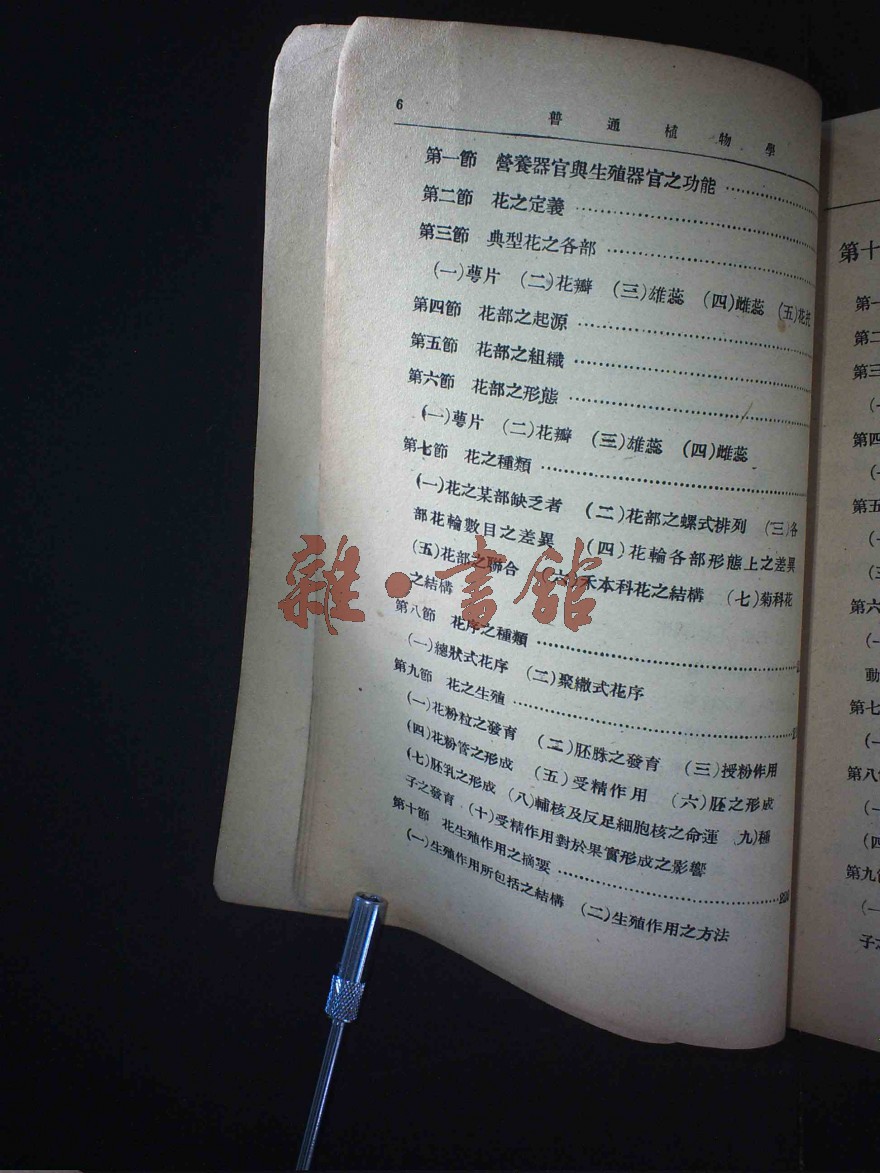 6
普通植物學
第一節 營養器官與生殖器官之功能
第二節 花之定義
第三節 典型花之各部
(一)萼片 (二)花瓣 (三)雄蕊 (四)雌蕊 (五)花托
第四節 花部之起源
第五節 花部之組織
第六節 花部之形態
(一)萼片 (二)花瓣 (三)雄蕊 (四)雌蕊
第七節 花之種類
(一)花之某部缺乏者 (二)花部之螺式排列 (三)各
部花輪數目之差異 (四)花輪各部形態上之差異
(五)花部之聯合 (六)禾本科花之結構 (七)菊科花
之結構
第八節 花序之種類
(一)總狀式花序 (二)聚繖式花序
第九節 花之生殖
(一)花粉粒之發育 (二)胚珠之發育 (三)授粉作用
(四)花粉管之形成 (五)受精作用 (六)胚之形成
(七)胚乳之形成 (八)輔核及反足細胞核之命運 九)種
子之發育 (十)受精作用對於果實形成之影響
第十節 花生殖作用之摘要
(一)生殖作用所包括之結構 (二)生殖作用之方法
雜·書館
第十
第一
第二
第三
(一
第四
(一
第五
(一
(三
第六
(一
動
第七
(一
第八
(一
(四
第九
(一
子之